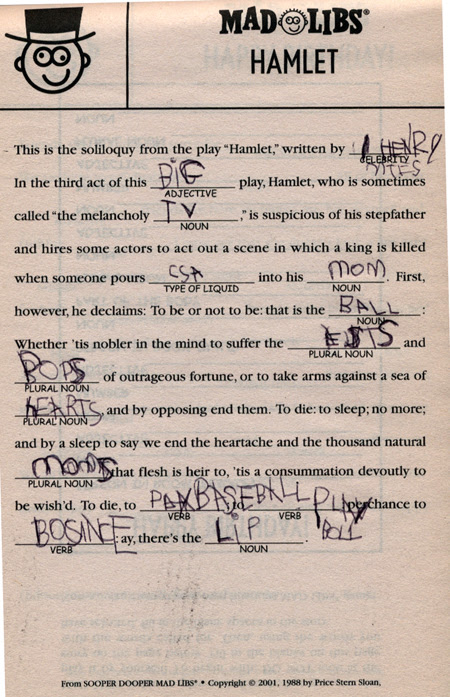 MAD LIBS®
HAMLET
This is the soliloquy from the play “Hamlet,” written by HENRY
CELEBRITY
In the third act of this BiG play, Hamlet, who is sometimes
ADJECTIVE
called “the melancholy TV ,” is suspicious of his stepfather
NOUN
and hires some actors to act out a scene in which a king is killed
when someone pours into his MOM. First,
TYPE OF LIQUID NOUN
however, he declaims: To be or not to be: that is the BALL :
NOUN
Whether ’tis nobler in the mind to suffer the and
PLURAL NOUN
POPS of outrageous fortune, or to take arms against a sea of
PLURAL NOUN
HEARTS, and by opposing end them. To die: to sleep; no more;
PLURAL NOUN
and by a sleep to say we end the heartache and the thousand natural
MOMS that flesh is heir to, ’tis a consummation devoutly to
PLURAL NOUN
be wish’d. To die, to BASEBALL PLAY perchance to
VERB VERB BOLL
: ay, there’s the LiP .
VERB NOUN
From SOOPER DOOPER MAD LIBS® • Copyright © 2001, 1988 by Price Stern Sloan,